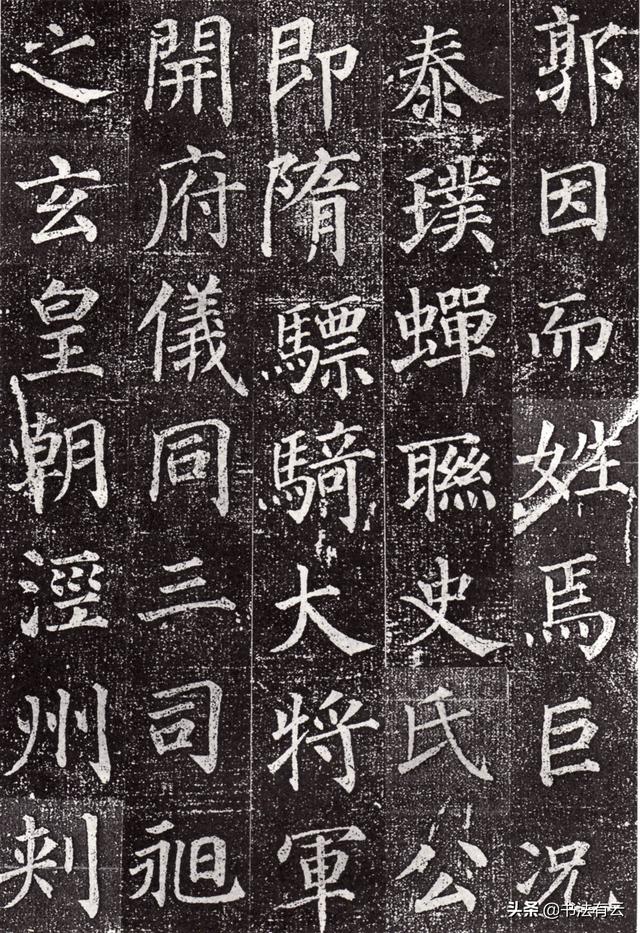 郭因而姓焉巨况
泰璞蟬聯史氏公
即隋驃騎大將軍
開府儀同三司昶
之玄皇朝涇州刾
头条 @书法有云